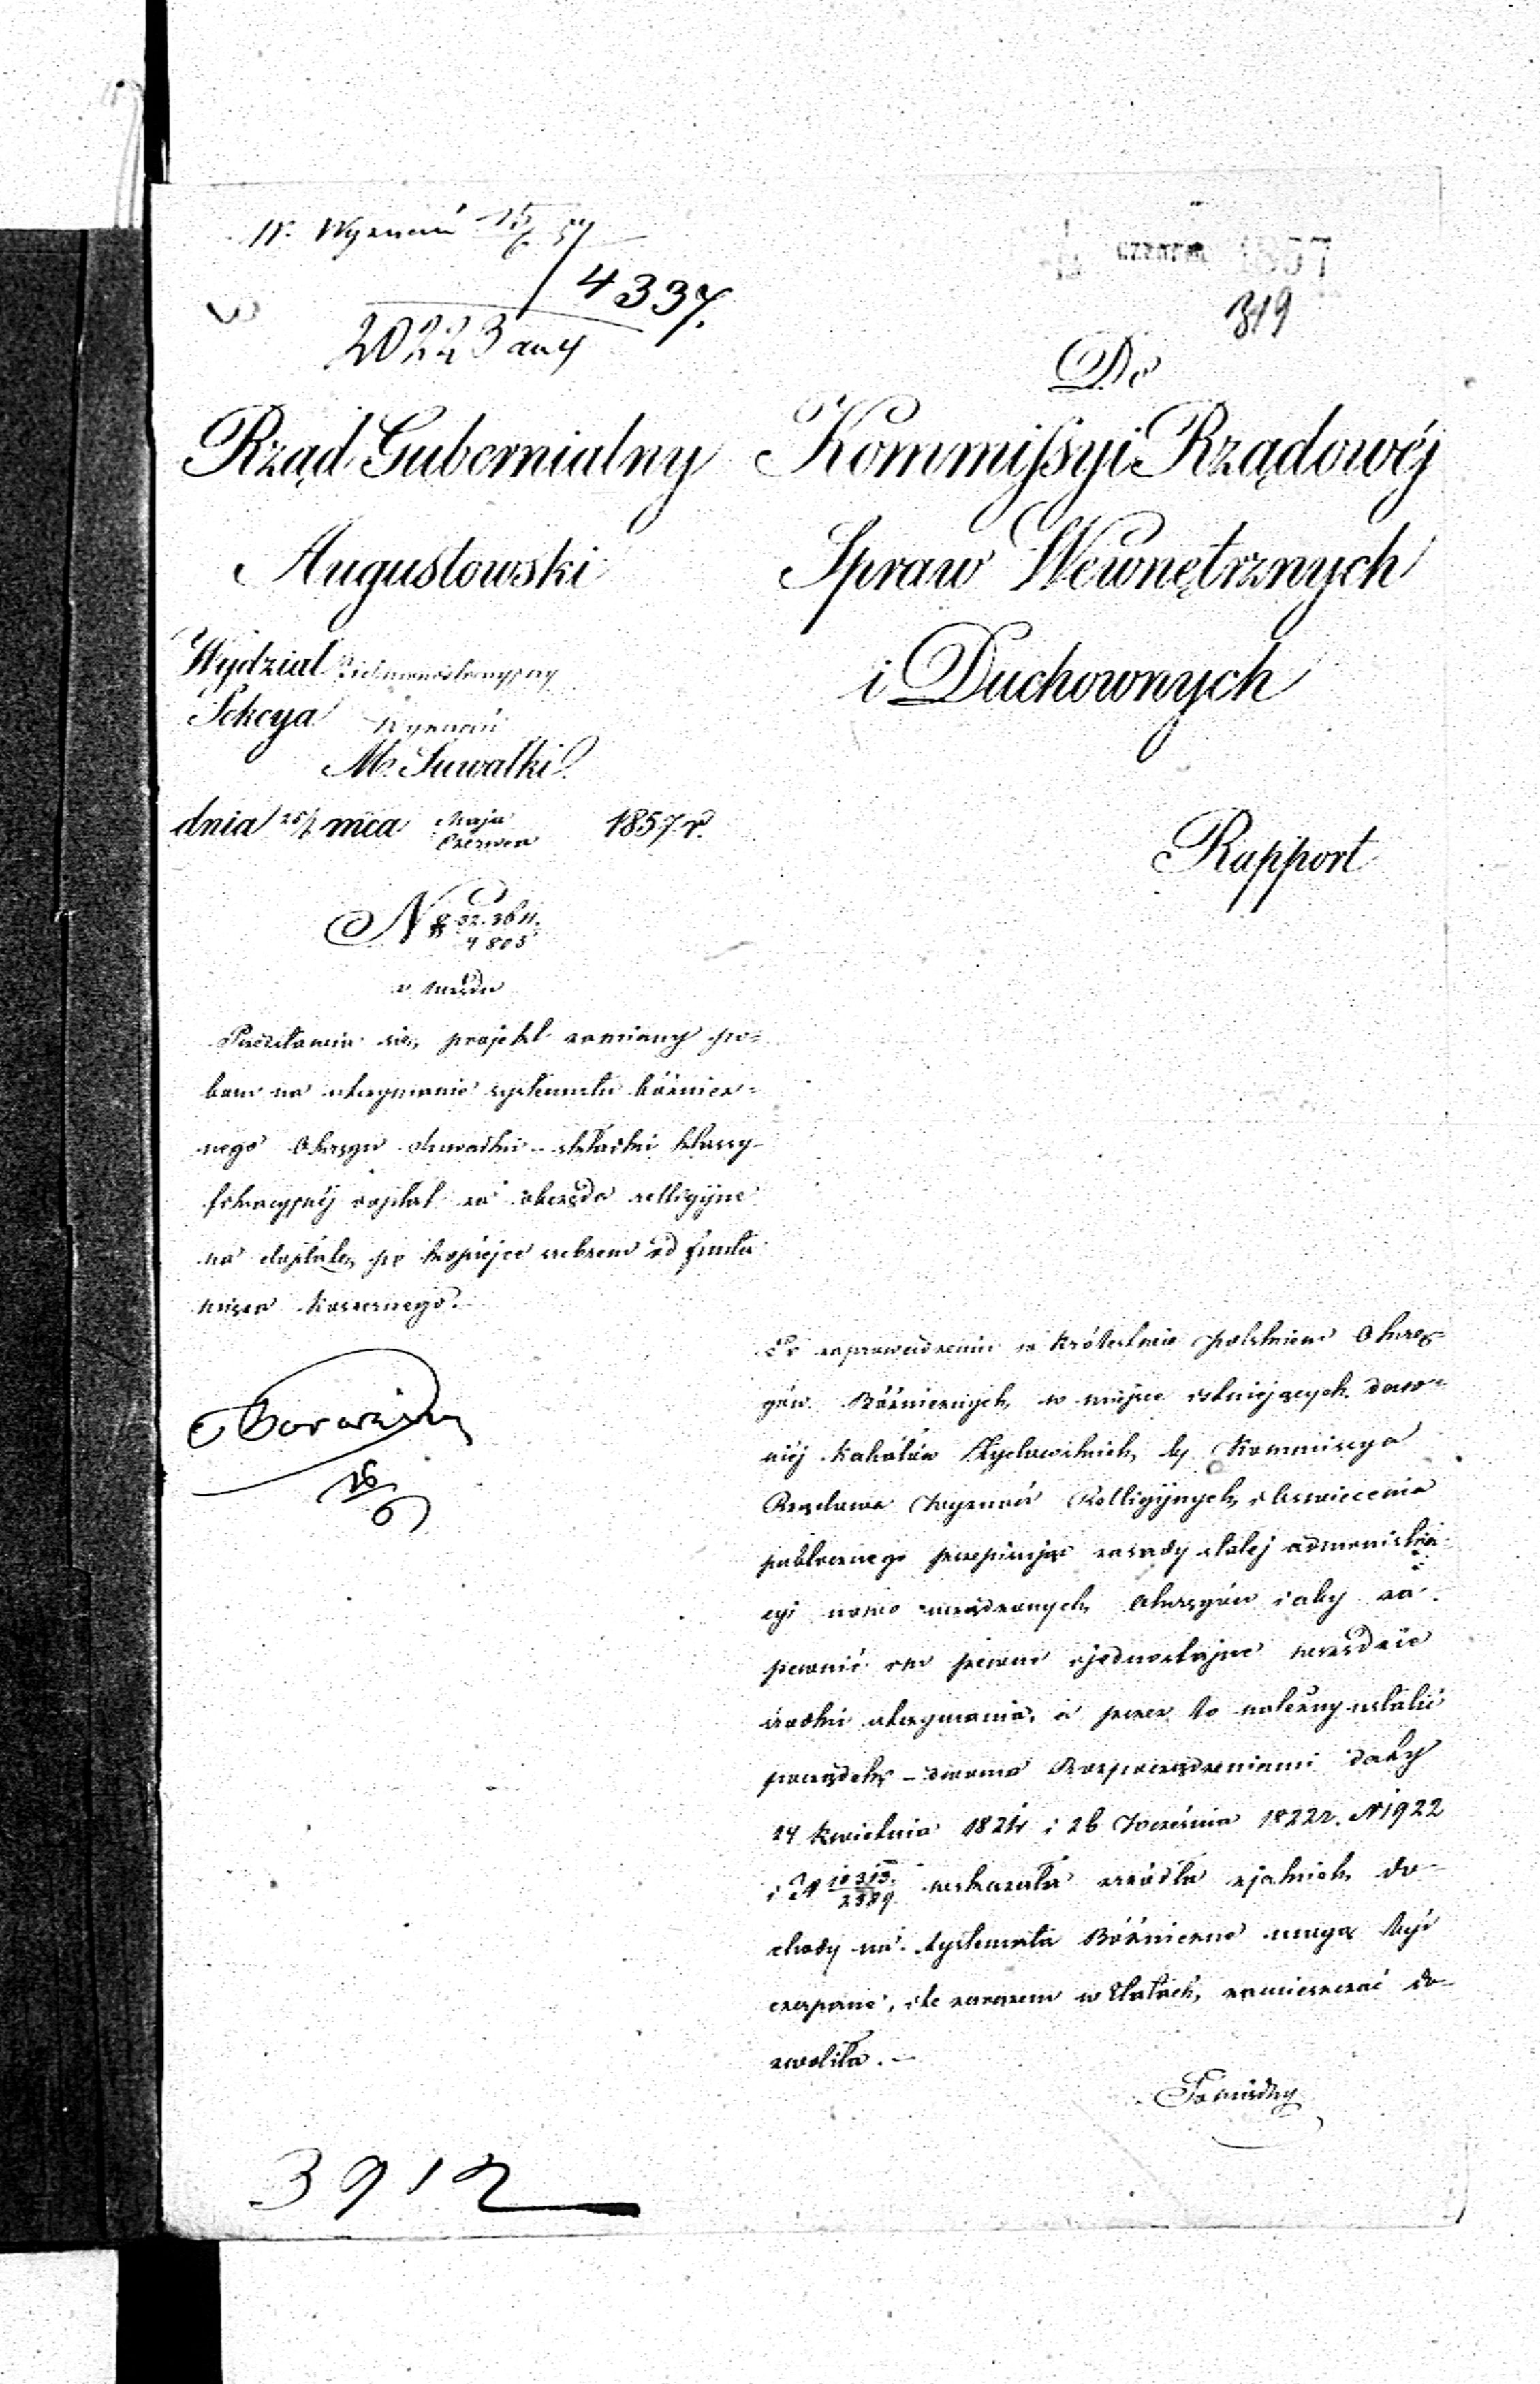 W. Wyznań
4337.
20223
czerwca 1857
319
Rząd Gubernialny
Augustowski
Wydział Administracyjny
Sekcya Wyznań
M. Suwałki
dnia 25/6 mca Maja
Czerwca 1857 r.
N 32.3611.
4805
Przedstawia się projekt zamiany po=
boru na utrzymanie systematu bóżnicz=
nego Okręgu Suwałki – składki klassy-
fikacyjnej i opłat za obrzędy relligijne
na dopłatę po kopiejce srebrem od funta
mięsa koszernego.
16/6
Do
Kommissyi Rządowéj
Spraw Wewnętrznych
i Duchownych
Rapport
Po zaprowadzeniu w Królestwie Polskiem Okrę=
gów Bóżniczych, w miejsce istniejących daw=
niéj Kahałów Żydowskich, b. Kommissya
Rządowa Wyznań Relligijnych i Oświecenia
publicznego przepisując zasady stałej administra-
cyi nowo urządzonych Okręgów i aby za-
pewnić im pewne i jednostajne wszędzie
środki utrzymania, a przez to należny ustalić
porządek – dwoma Rozporządzeniami daty
24 Kwietnia 1821 r i 26 Września 1822 r. N 1922
i N 10313
2389 wskazała źródła z jakich do-
chody na Systemata Bóżniczne mogą być
czerpane, i te zarazem w Etatach, zamieszczać do-
zwoliła. –
3912